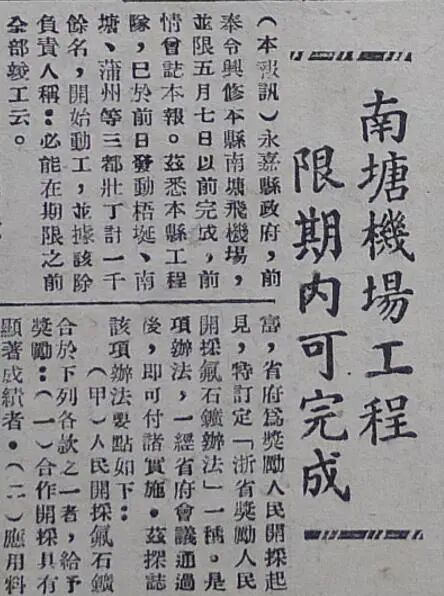 南塘機場工程
限期內可完成
（本報訊）永嘉縣政府，前
奉令興修本縣南塘飛機場，
並限五月七日以前完成，前
情曾誌本報。茲悉本縣工程
隊，已於前日發動梧埏、南
塘、蒲州等三都壯丁計一千
餘名，開始動工，並據該除
負責人稱：必能在期限之前
全部竣工云。
富，省府爲獎勵人民開採起
見，特訂定「浙省獎勵人民
開採氟石鑛辦法」一種。是
項辦法，一經省府會議通過
後，即可付諸實施。茲探誌
該項辦法要點如下：
（甲）人民開採氟石鑛
合於下列各款之一者，給予
獎勵：（一）合作開採具有
顯著成績者。（二）應用料